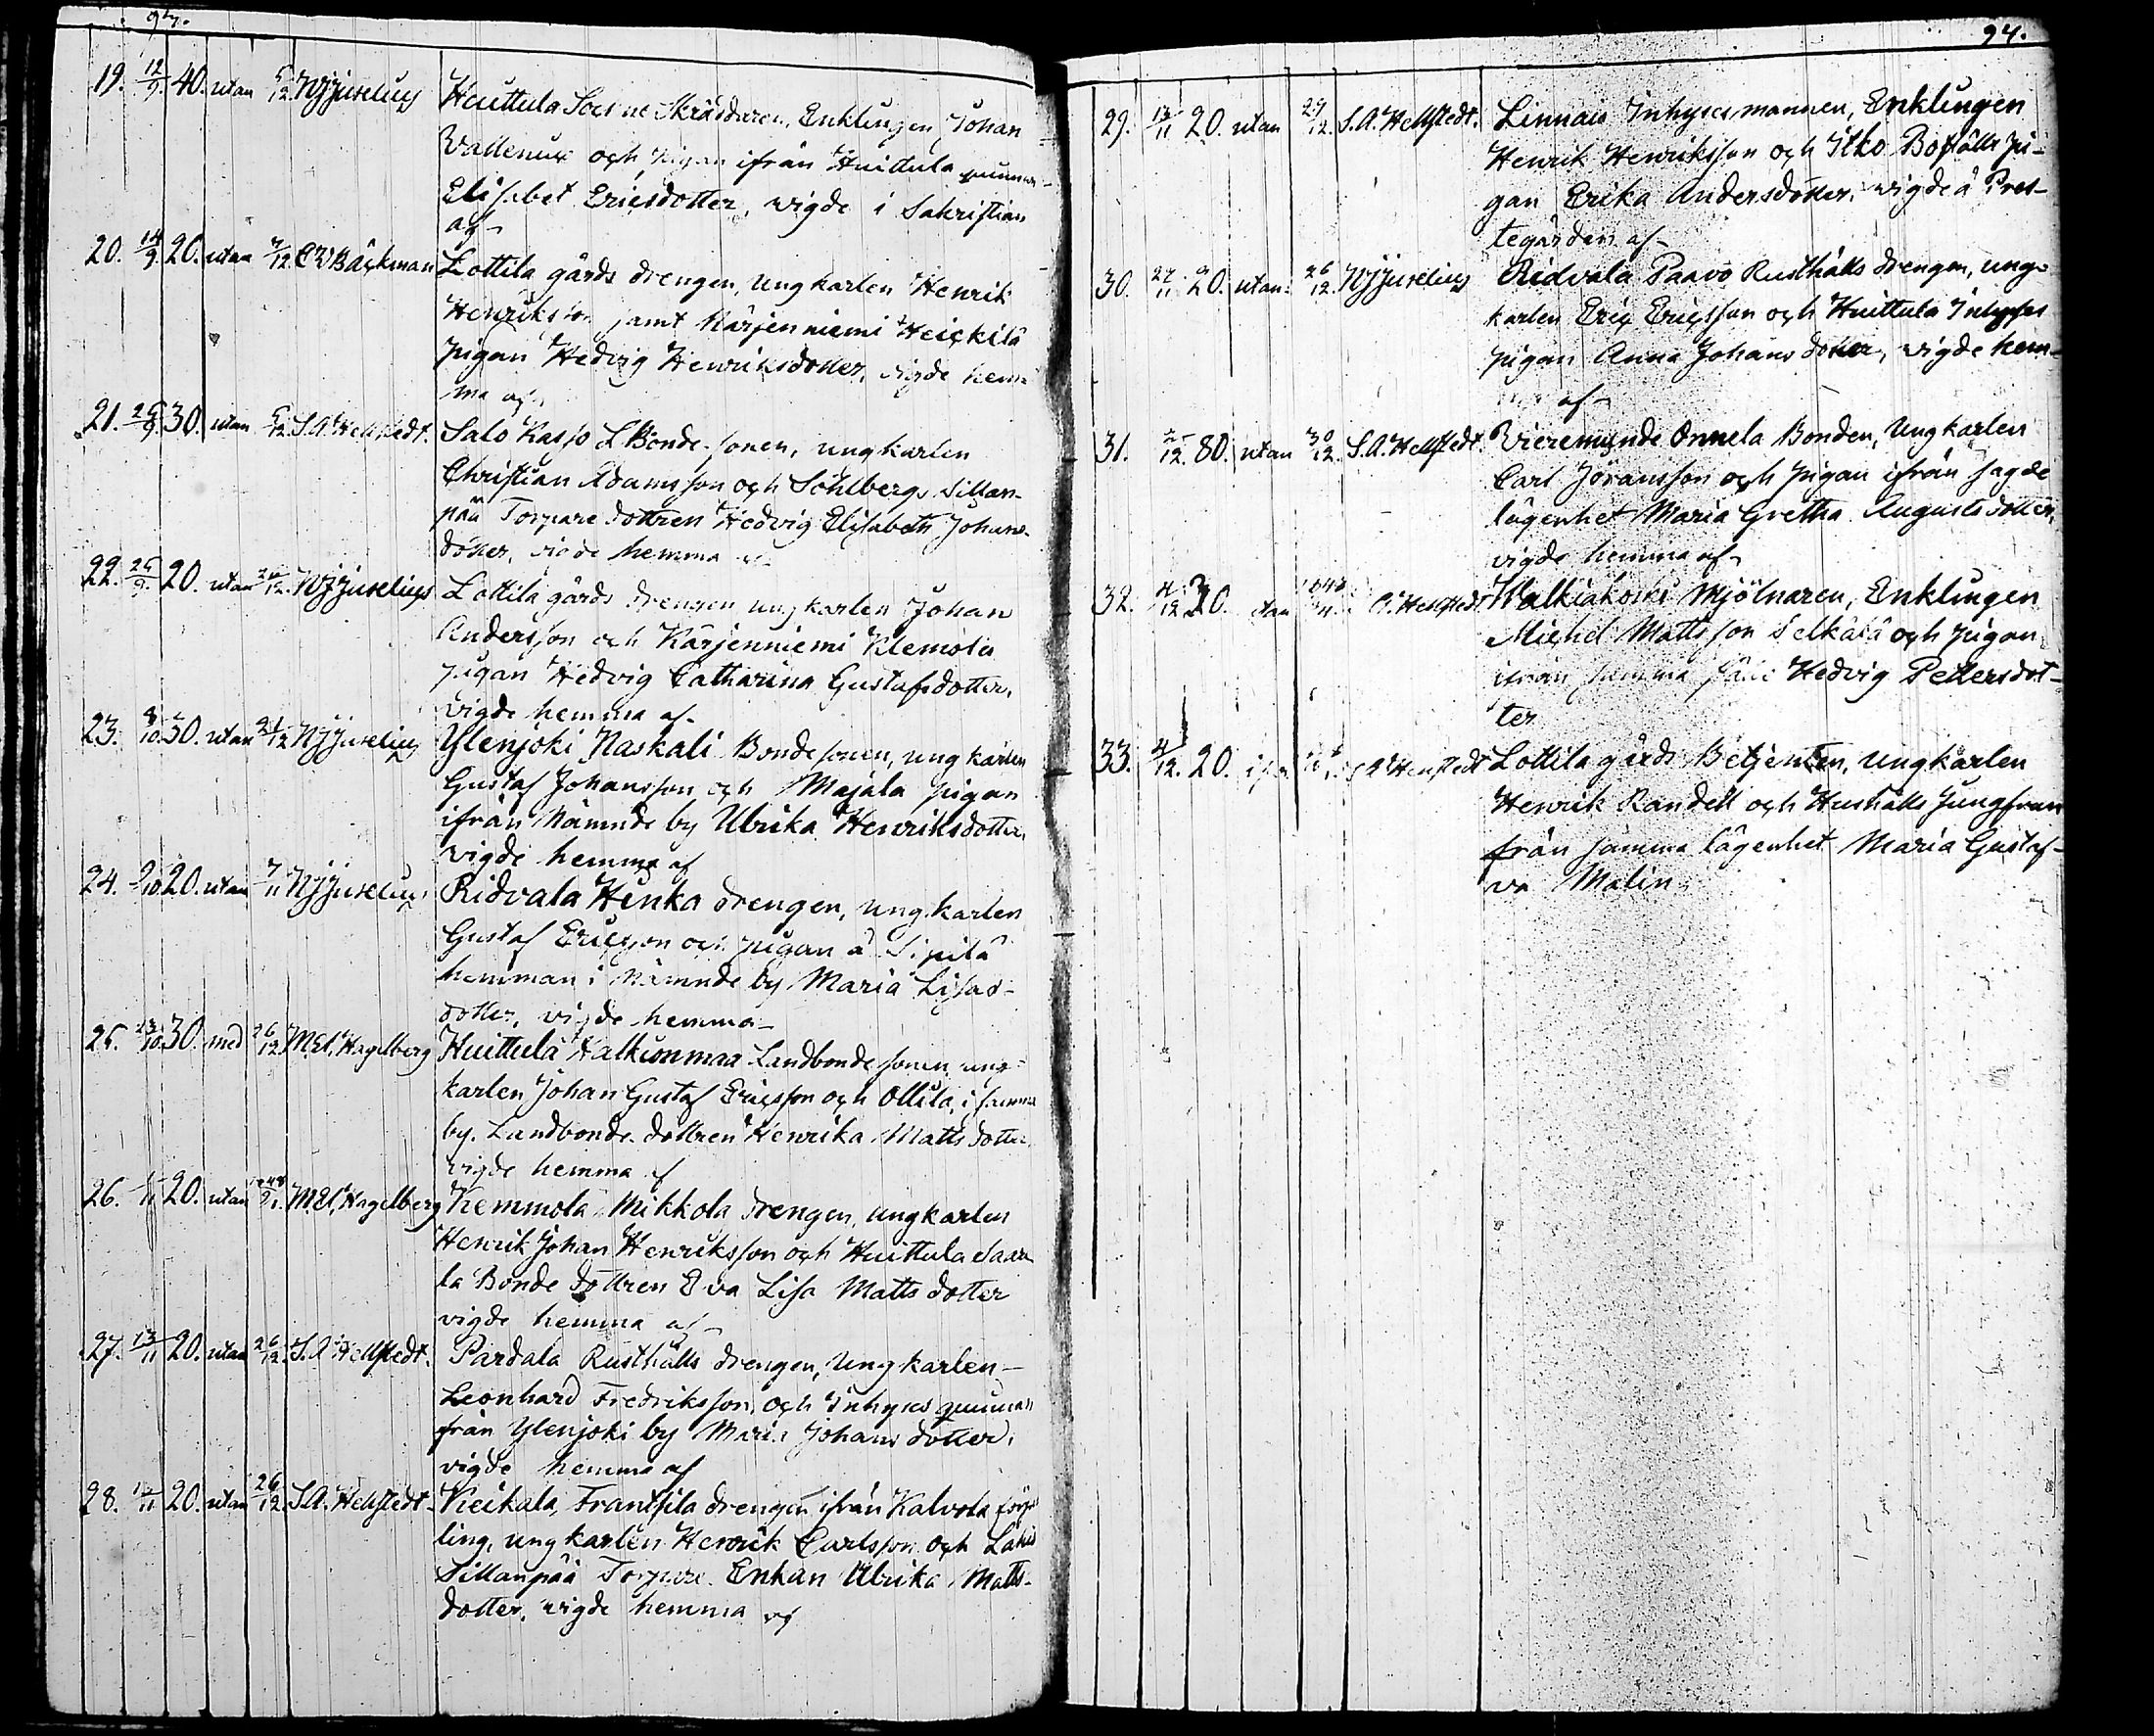 94.
19. 12/9. 40. utan 5/12. NJJuselius Huittula Socne Skräddaren, Enklingen Johan
Vallenius och pigan ifrån Huittula
Elisabet Ericsdotter, vigde i Sakristian
af
20. 14/9. 20. utan 7/12 CW Bäckman Lottila gårds drengen, ungkarlen Henrik
Henriksson samt Kärjenniemi Heickilä
pigan Hedvig Henriksdotter, vigde hem-
ma af
21. 25/9. 30. utan 5/12. S.A. Hellstedt. Salo Kasso L Bonde sonen, ungkarlen
Christian Adamsson och Sohlbergs Sillan-
pää Torpare dottren Hedvig Elisabeth Johans-
dotter, vigde hemma
22. 25/9. 20. utan 26/12. NJJuselius Lottila gårds drengen ungkarlen Johan
Andersson och Kärjenniemi Klemola
pigan Hedvig Catharina Gustafsdotter,
vigde hemma af
23. 8/10. 30. utan 21/12 NJJuselius Ylenjoki Naskali Bondesonen, ungkarlen
Gustaf Johansson och Majala pigan
ifrån Nämnde by Ulrika Henriksdotter
vigde hemma af
24. 9/10 20. utan 7/11 NJJuselius Ridvala Henka drengen, ungkarlen
Gustaf Ericsson och pigan å Sipilä
hemman i Nämnde by Maria Lisas-
dotter, vigde hemma
25. 23/10. 30. med 26/12 M.El. Hagelberg Huittula Halkionmaa Landbonde sonen ung-
karlen Johan Gustaf Ericsson och Ollila, i samma
by, Landbonde dottren Henrika Matts dotter
vigde hemma af
26. 20. utan 1848 2/1. M.El. Hagelberg Kemmola Mikkola drengen, ungkarlen
Henrik Johan Henriksson och Huittula Saari
la Bonde Dottren Eva Lisa Matts dotter
vigde hemma af
27. 13/11 20. utan 26/12. S.A. Hellstedt. Pärdala Rusthålls drengen, ungkarlen
Leonhard Fredriksson, och Inhyses qvinnan
från Ylenjoki by Maria Johans dotter,
vigde hemma af
28. 20. utan 26/12. S.A. Hellstedt. Keikala, Frantsila drengen ifrån Kalvola
ling, ungkarlen Henrik Carlsson och
Sillanpää Torpare Enkan Ulrika Matts-
dotter, vigde hemma af
94.
29. 13/11 20. utan 27/12. S.A. Hellstedt. Linnais Inhyses mannen, Enklingen
Henrik Henriksson och Ilko Boställs pi-
gan Erika Andersdotter, vigde å Pres-
tegården af
30. 27/11. 20. utan 26/12. NJJuselius Ridvala Paavo Rusthålls drengen, ung-
karlen Eric Ericsson och Huittula Inhyses
pigan Anna Johans dotter, vigde hem-
af
31. 80. utan 30/12. S.A. Hellstedt. Vieremunde Onnela Bonden, Ungkarlen
Carl Jöransson och pigan ifrån sagde
lägenhet Maria Gretha Augusts dotter,
vigde hemma af
32. 4/12 30. utan 1848 Hellstedt Walkiakoski Mjölnaren, Enklingen
Michel Mattsson Selkälä och pigan
ifrån samma Hedvig Pettersdot-
ter
33. 4/12. 20. Hellstedt Lottila gårds Betjenten, ungkarlen
Henrik Randell och Hushålls Jungfrun
från samma lägenhet Maria Gustaf-
va Malin